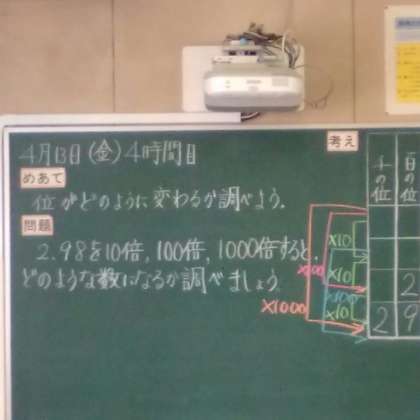 4月13日(金)4時間目
めあて
位がどのように変わるか調べよう。
問題
2.98を10倍,100倍,1000倍すると,
どのような数になるか調べましょう。
考え
千の位
百の位
×10
×100
×10
×100
×10
×1000
2
2 9